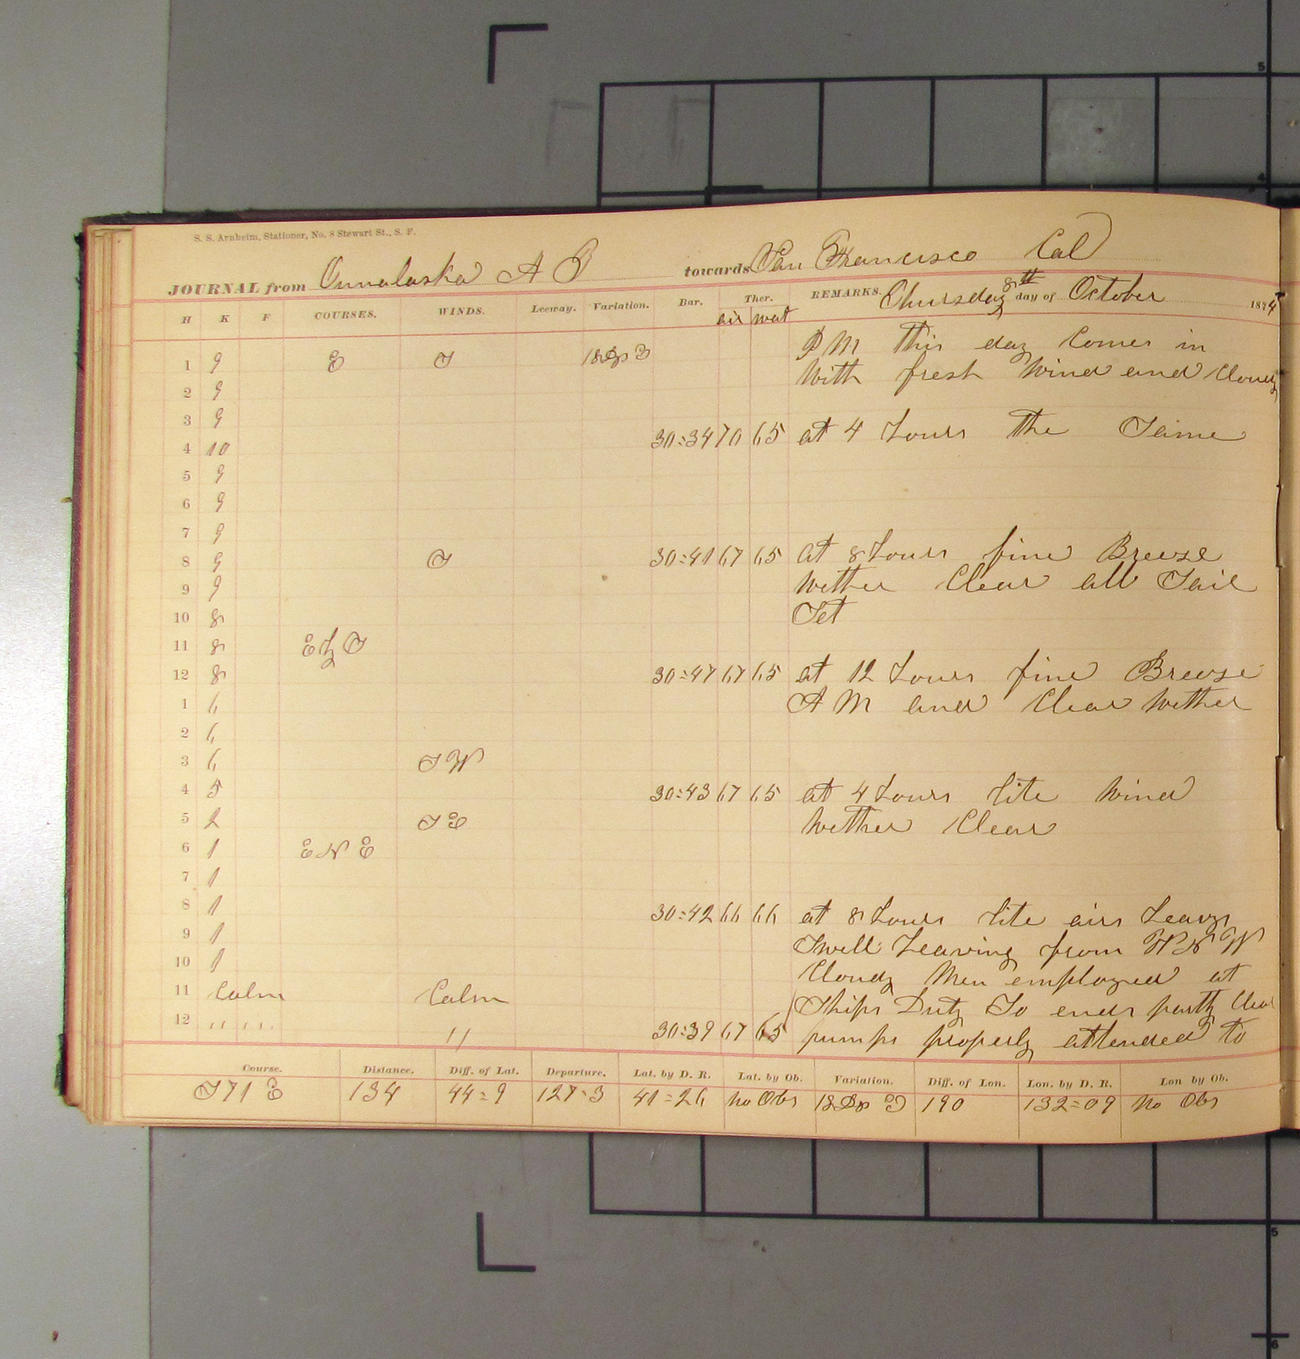 S. S. Arnheim, Stationer, No. 8 Stewart St., S. F.
JOURNAL from Ounalaska A T towards San Francisco Cal
REMARKS. Thursday 8th day of October 1874
H K F COURSES. WINDS. Leeway. Variation. Bar. Ther. air wat
P M This day Comes in
1 9 E S 18 Dg E With fresh Wind and Cloudy
2 9
3 9
4 10 30=34 70 65 at 4 hours The Same
5 9
6 9
7 9
8 9 S 30=41 67 65 at 8 hours fine Breese
9 9 Wether Clear all Sail
10 8 Set
11 8 E by S
12 8 30=47 67 65 at 12 hours fine Breese
1 6 A M and Clear Wether
2 6
3 6 S W
4 5 30=43 67 65 at 4 hours lite Wind
5 2 S E Wether Clear
6 1 E N E
7 1
8 1 30=42 66 66 at 8 hours lite airs heavy
9 1 Swell heaving from W N W
10 1 Cloudy Men employed at
11 Calm Calm Ships Duty So ends partly Clear
12 " " " " " 30=39 67 65 pumps properly attended to
Course. Distance. Diff. of Lat. Departure. Lat. by D. R. Lat. by Ob. Variation. Diff. of Lon. Lon. by D. R. Lon by Ob.
S 71 E 134 44=9 127=3 41=26 no Obs 18 Dg E 190 132=09 no Obs
5
4
5
6